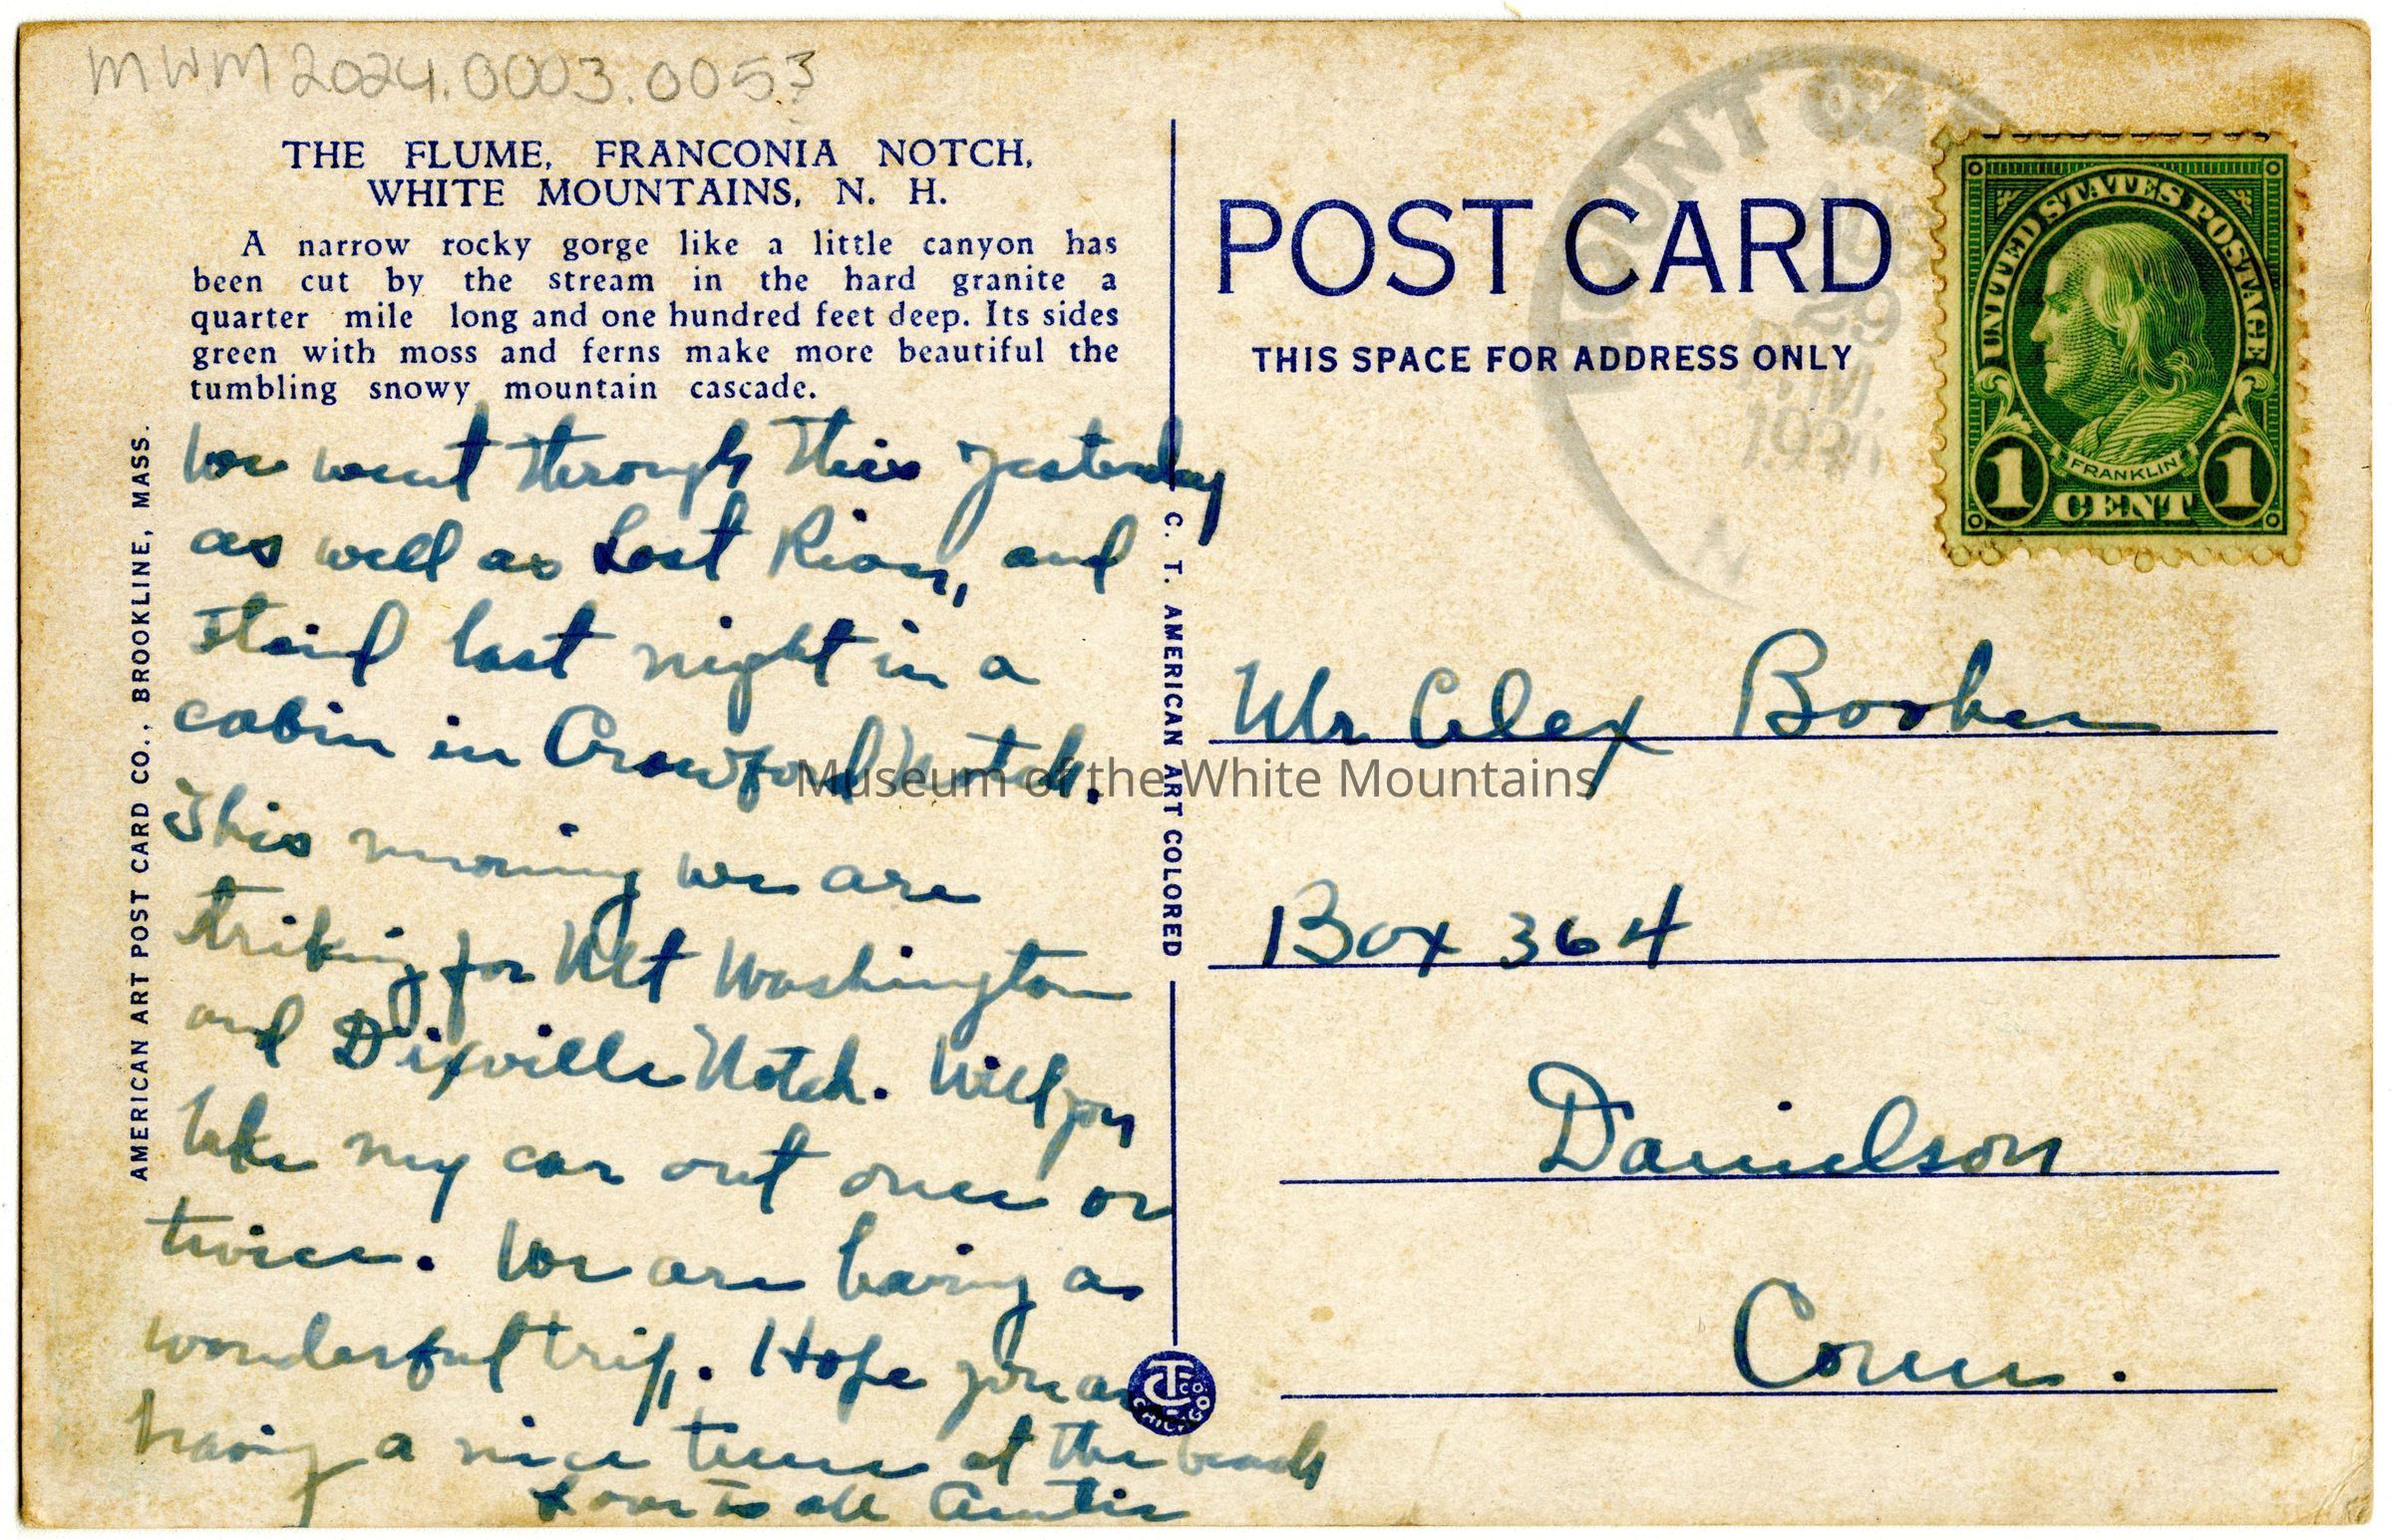 MWM2024.0003.0053
THE FLUME, FRANCONIA NOTCH,
WHITE MOUNTAINS, N. H.
A narrow rocky gorge like a little canyon has
been cut by the stream in the hard granite a
quarter mile long and one hundred feet deep. Its sides
green with moss and ferns make more beautiful the
tumbling snowy mountain cascade.
We went through this yesterday
as well as Lost River, and
staid last night in a
cabin in Crawford Notch.
This morning we are
striking for Mt Washington
and Dixville Notch. Will you
take my car out once or
twice. We are having a
wonderful trip. Hope you are
having a nice time at the beach
Love to all Auntie
AMERICAN ART POST CARD CO., BROOKLINE, MASS.
C. T. AMERICAN ART COLORED
C.T. CO. CHICAGO
POST CARD
THIS SPACE FOR ADDRESS ONLY
MOUNT
AUG
29
P.M.
N
UNITED STATES POSTAGE
FRANKLIN
1 CENT 1
Mr Alex Booker
Box 364
Danielson
Conn.
Museum of the White Mountains